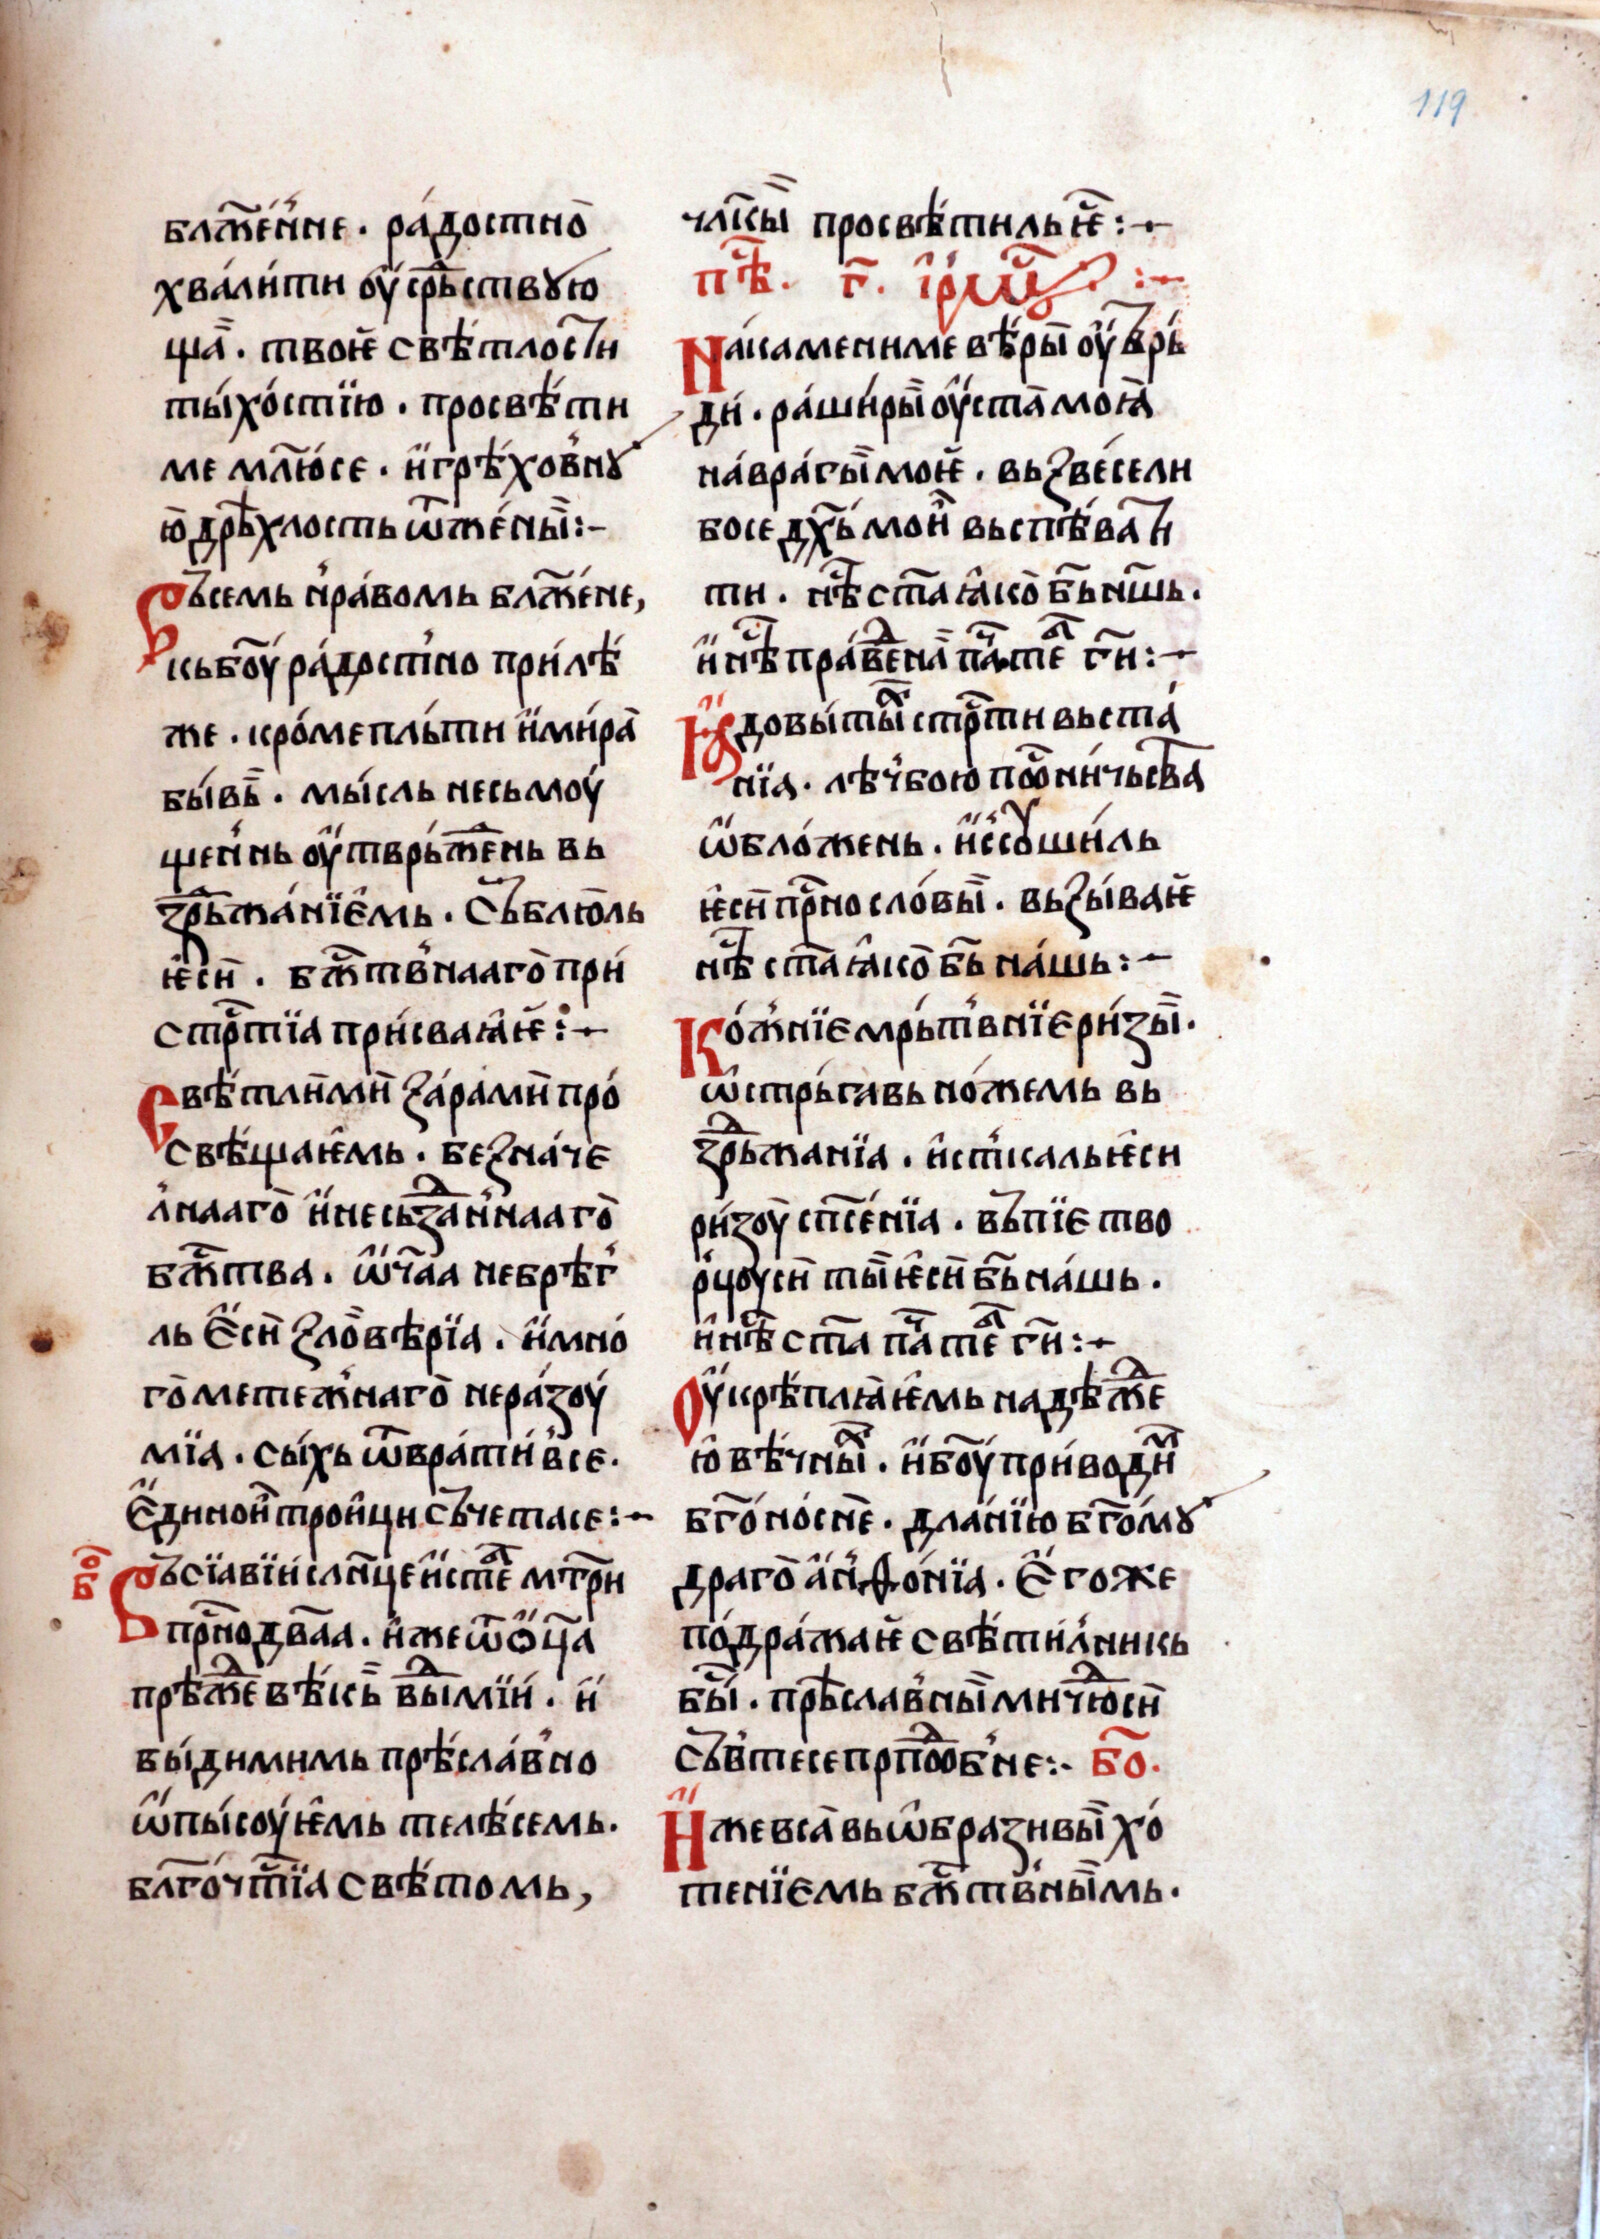 119
блж҃е́нне · ра́достно̀
хва́лити оу҆срьⷣствꙋю
ща̀ · твоѥ̀ свѣ́тлостⷭ҇и
ты́хо́стїю · просвѣ́ти
ме мл҃юсе · и҆грѣ́хов̾нꙋ
ю̀дре҆́хлость ѿже́ны̀ :–
Въ́семь н̾ра́вомь блж҃е́не,
кьбо҃у́ ра́дост̾но при́лѣ́
же · кро́мепль́ти и҆ми́ра̀
бы́вь̀ · мы́сль несьмоу́
щен̾нь оу҆тврь́жⷣень вь
зⷣрьжа́нїемь · Съблю́ль
ѥ҆сѝ · бжⷭ҇тв̾нааго̀ при́
стрⷭ҇тїа при́сваꙗѥ̀ :–
Свѣ́тлы̀мѝ ꙁа́рамѝ про́
свѣ́щаѥ҆мь · беꙁна́че
л̾нааго̀ и҆несьзⷣан̾нааго̀
бжⷭ҇тва · ѡ҆ч҃аа небрѣг̾
ль є҆сѝ ꙁло̀вѣрїа · и҆мно́
го̀метеж̾наго̀ нера́зоу́
мїа · сы́хь ѿвра́ти́в̾се ·
є҆динои҆̀трои҆ци съ́четасе :–
бг҃о
Въ́сїавїи́ сл҃нцеи҆сⷭ҇те м҃три
прⷭ҇нодв҃аа · и҆жеѿѻ҆ц҃а
прѣ́жⷣе вѣ́кь̀ вы́ⷣмїи́ · и҆
вы́димимь прѣ́сла́в̾но
ѡ҆пы́соу́ѥ҆мь телѣ́семь ·
блг҃о́чтⷭ҇їа свѣ́томь,
чл҃кы̀ просвѣ́тильѥ̀ :–
пⷭ҇ѣ · г҃ · і҆рмⷭ҇ѡ :–
На́камениме вѣ́ры̀ оу҆твⷣрь́
ди́ · ра́ши́ры̀оу҆ста̀моꙗ̀
на́вра́гы̀моѥ̀ · вьꙁве́сели
босе дх҃ь́мои҆̀ вьспѣ́ватⷭ҇и
ти · нⷭ҇ѣ ст҃а ꙗ҆ко̀ б҃ь нш҃ь ·
и҆ нⷭ҇ѣ пра́вⷣена̀ пⷱа те́ⷠ г҃и :–
Ꙗ҆довы́ты́ⷯ стрⷭ҇ти вьста́
нїа · лѣч̾бою поⷭ҇ни́чьсⷭ҇тва
ѡ҆бло́жень · и҆с̾соуши́ль
ѥ҆сѝ прⷭ҇но сло́вы̀ · вьꙁы́ваѥ̀
нⷭ҇ѣ ст҃а ꙗ҆ко̀ б҃ь на́шь :–
Ко́ж̾нїемрь́тв̾нїери́зы̀ ·
ѡ҆стрь́гавь но́жемь вь
зⷣрьжанїа · и҆ст̾кальѥ҆си
ри́зоу̀ сп҃се́нїа · въ́пїе тво
р̾цоусѝ ты̀ѥ҆сѝ б҃ь на́шь ·
и҆нⷭ҇ѣ ст҃а пⷱа теⷠ г҃и :–
Оу҆крѣ́плꙗѥ҆мь надѣ́жⷣе
ю̀ вѣ́чны́ⷯ · и҆бо҃у́ при́водиⷨ
бг҃о́но́снѐ · дла́нїю бг҃о́мꙋ
драго̀ а҆н̾ѳо́нїа · є҆гоже
по́дра́жаѥ̀ свѣ́ти́л̾никь
бы́ⷭ · прѣ́слав̾ны̀мичю́ⷣсѝ
съв̾тесепрпⷣоб̾не :– бо҃ ·
И҆жевса̀вьѡ҆бразивы̀ хо́
тенїемь бжⷭ҇тв̾ны̀мь ·